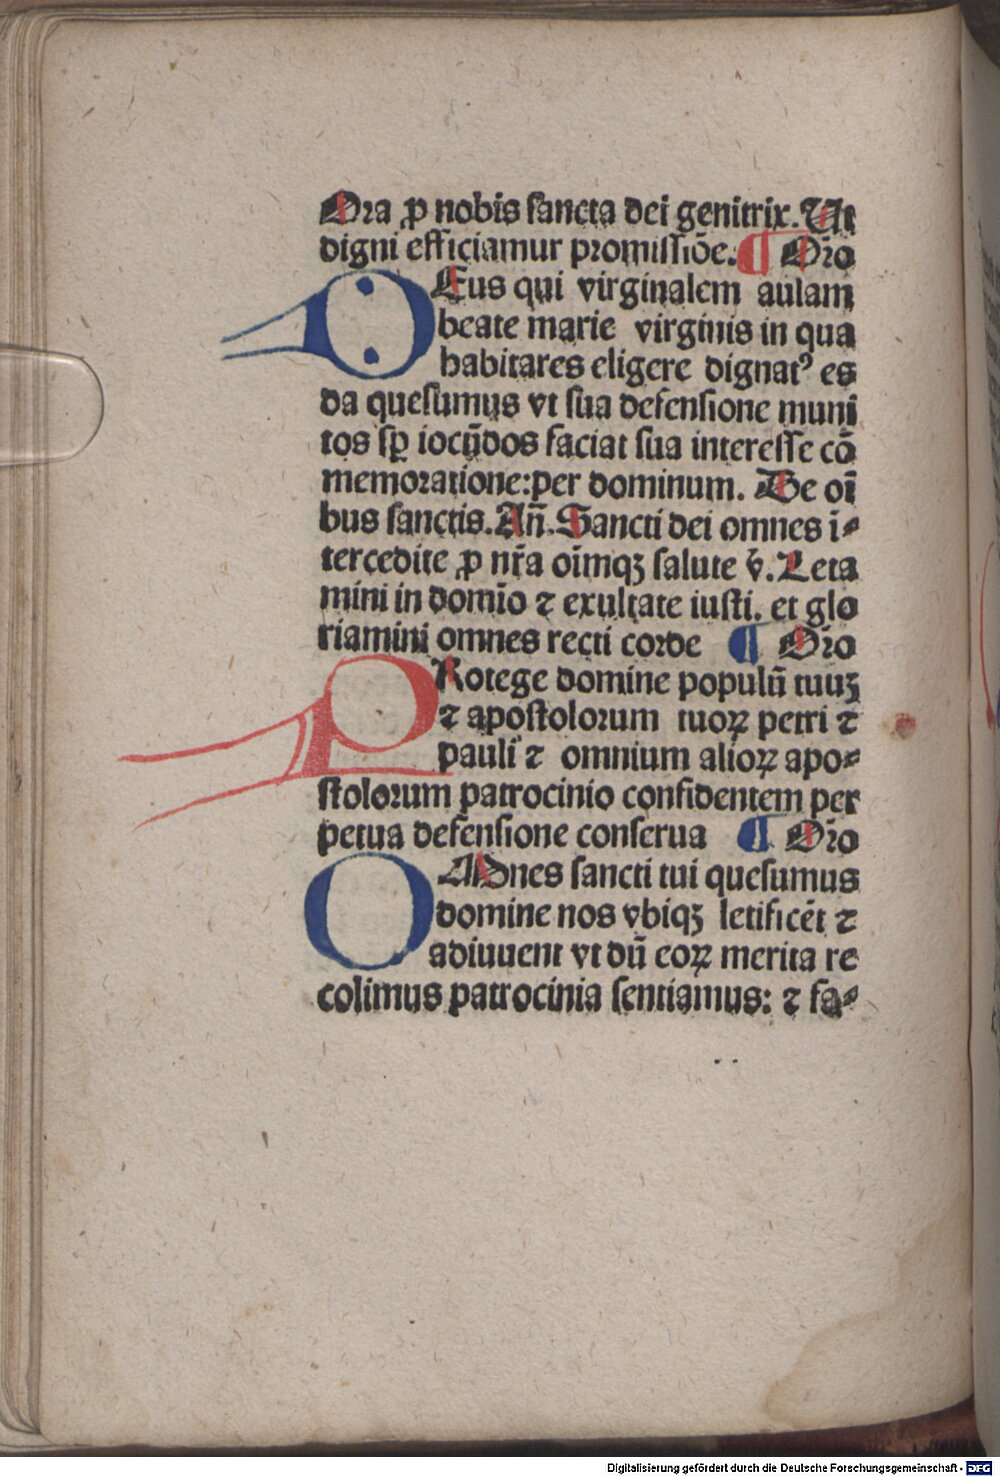 Ora ꝓ nobis sancta dei genitrix. Ut
digni efficiamur promissiōe. ¶ Orō
DEus qui virginalem aulam
beate marie virginis in qua
habitares eligere dignatꝰ es
da quesumus vt sua defensione muni
tos sꝑ iocūdos faciat sua interesse cō
memoratione: per dominum. De oī
bus sanctis. Añ. Sancti dei omnes ī⸗
tercedite ꝓ nr̄a oīmqꝫ salute v̄. Leta
mini in domīo ⁊ exultate iusti. et glo
riamini omnes recti corde ¶ Orō
PRotege domine populū tuuꝫ
⁊ apostolorum tuoꝝ petri ⁊
pauli ⁊ omnium alioꝝ apo⸗
stolorum patrocinio confidentem per
petua defensione conserua ¶ Orō
OMnes sancti tui quesumus
domine nos vbiqꝫ letificēt ⁊
adiuuent vt dū eoꝝ merita re
colimus patrocinia sentiamus: ⁊ fa⸗
Digitalisierung gefördert durch die Deutsche Forschungsgemeinschaft - DFG